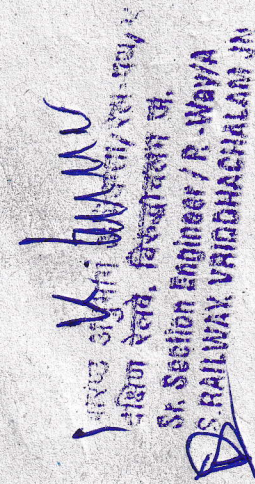 वरिष्ठ अनुभाग
दक्षिण रेलवे, विरुद्धाचलम जं.
Sr. Section Engineer / P. Way/A
S. RAILWAY, VRIDDHACHALAM JN